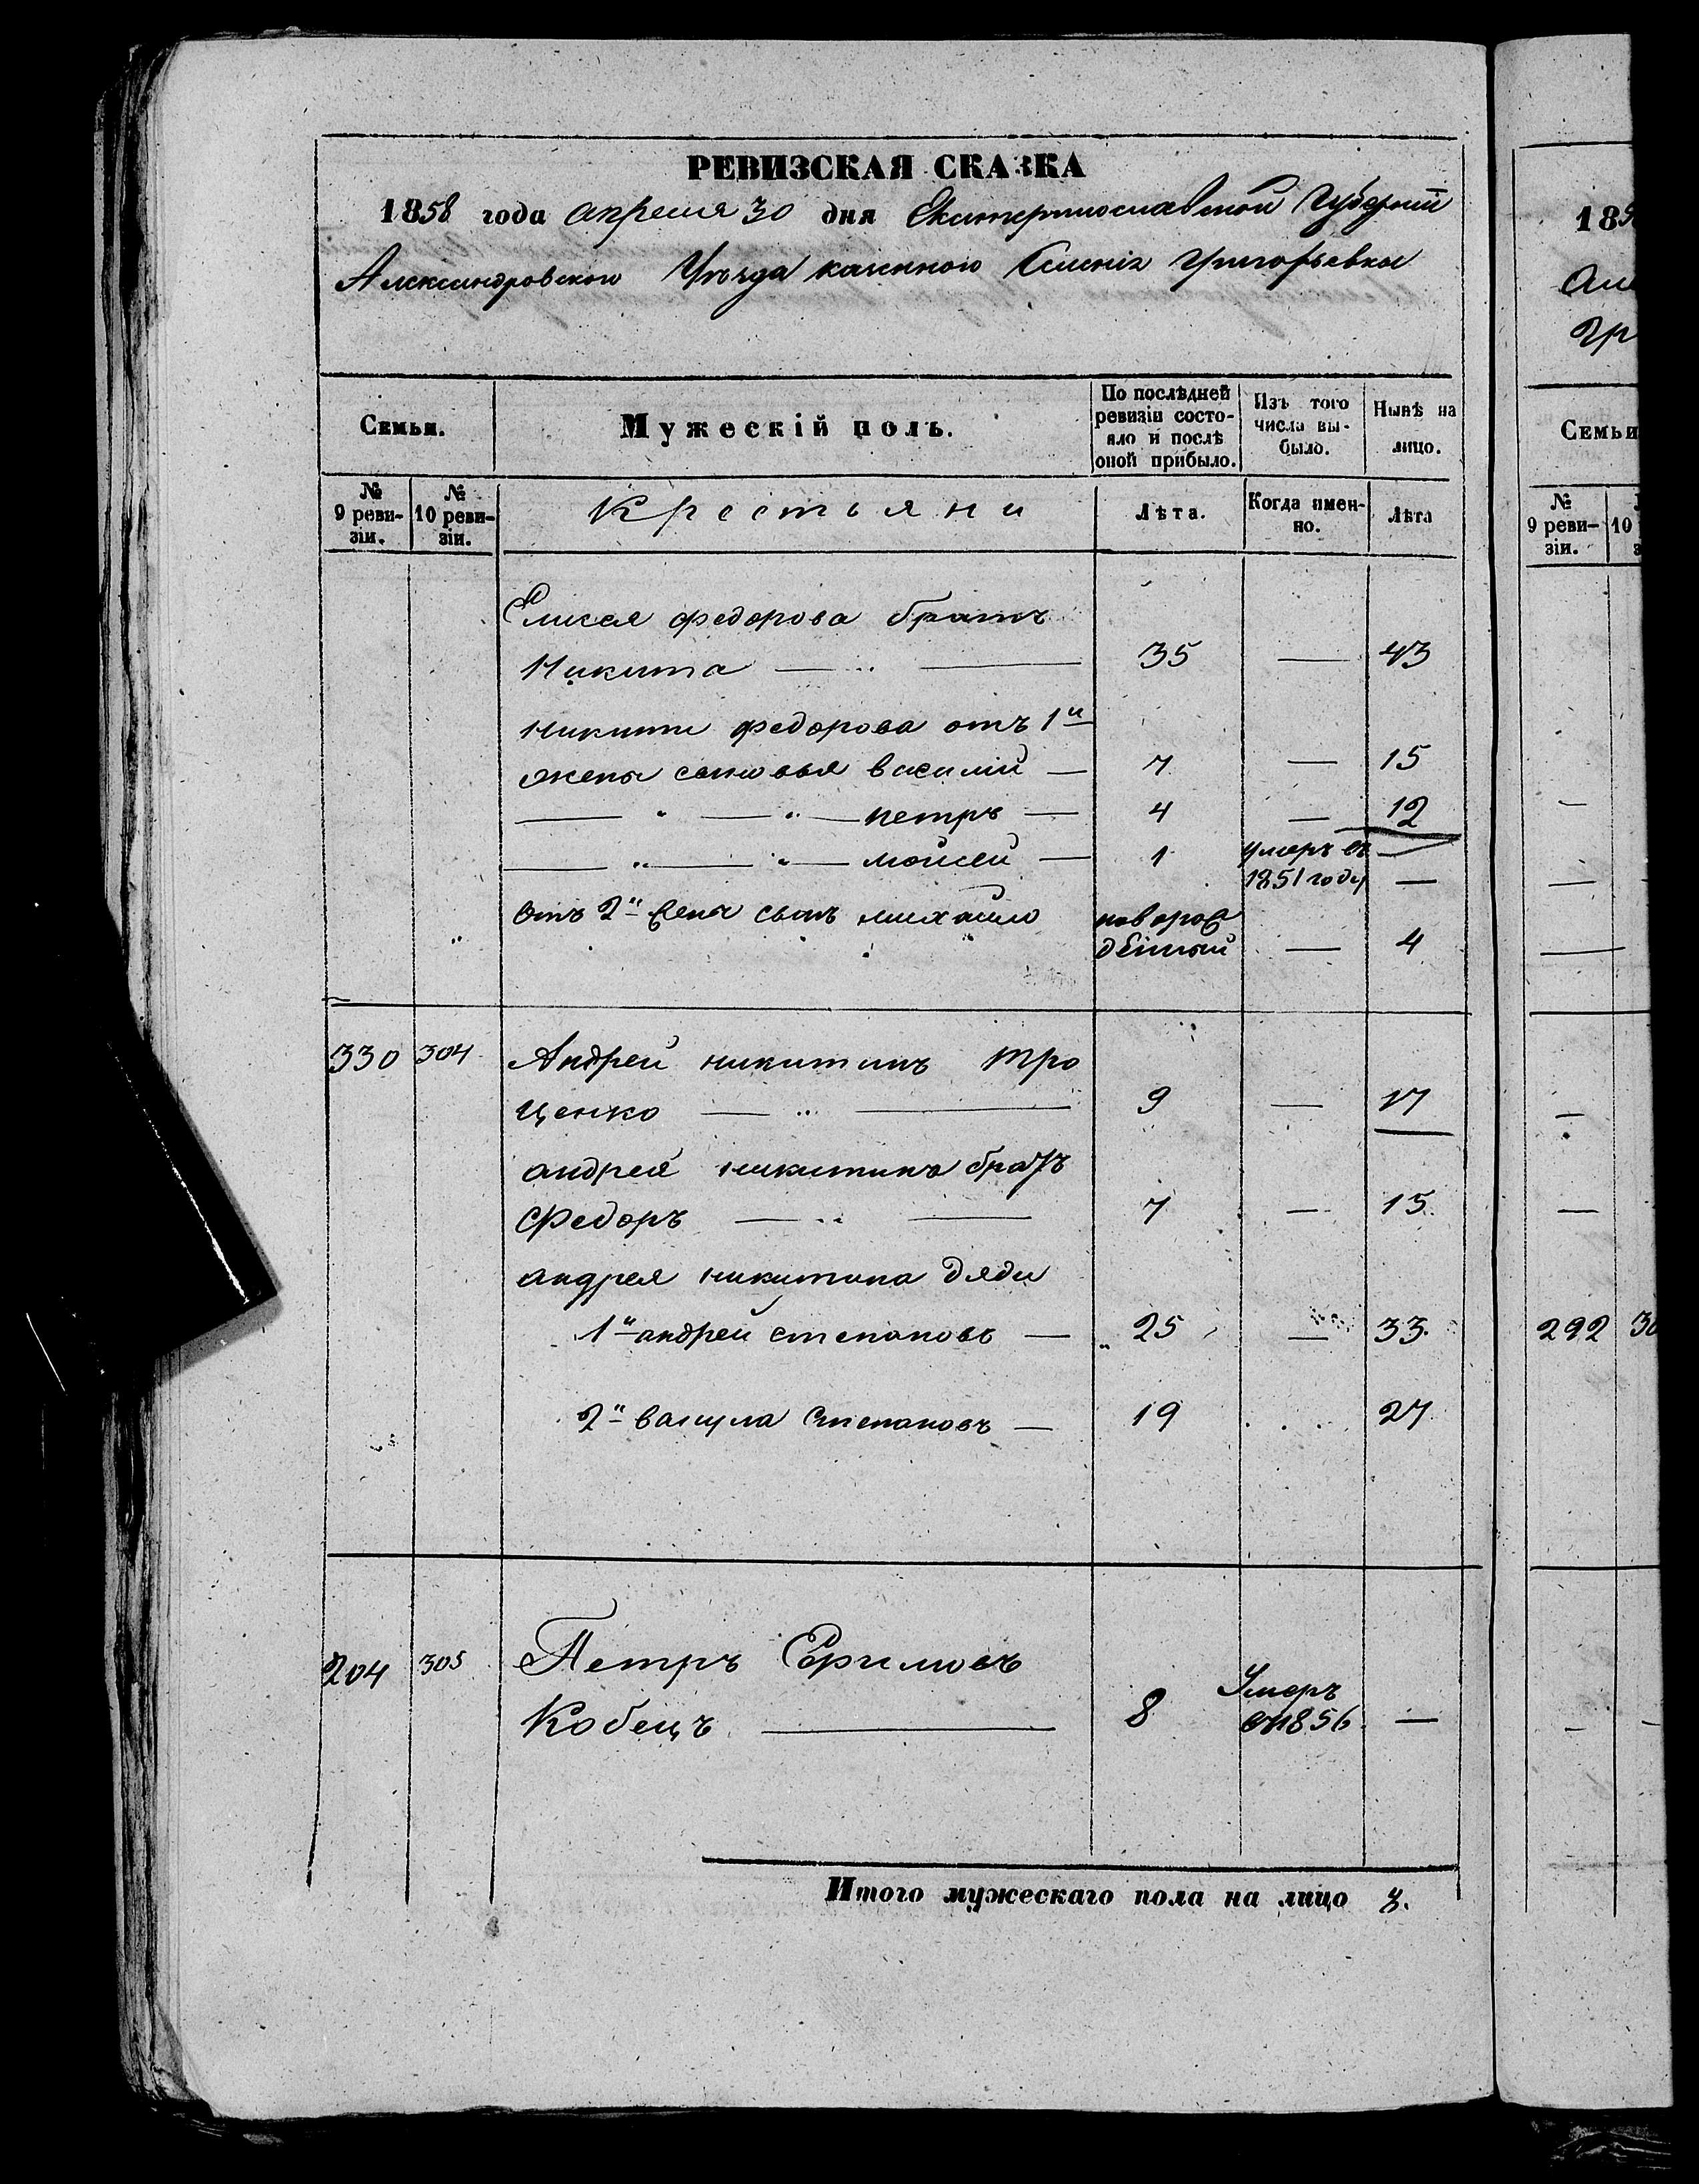 РЕВИЗСКАЯ СКАЗКА
1858 года апреля 30 дня Екатеринославской Губерніи
Александровского Уѣзда казенного Селенія Григорьевки
Семьи.
Мужескій полъ.
По послѣдней ревизіи состо-
яло и послѣ
оной прибыло.
Изъ того
числа вы-
было.
Нынѣ на
лицо.
№
9 реви-
зіи.
№
10 реви-
зіи.
Крестьяни
Лѣта.
Когда имен-
но.
Лѣта
Елисея федорова братъ
Никита — „ — 35 — 43
Никити федорова отъ 1й
жены сыновья василій — 7 — 15
— „ — „ — петръ — 4 — 12
— „ — „ — мойсей — 1 умеръ въ —
1851 году —
отъ 2й сынъ михайло новорож
дённый — 4
330 304 Андрей никитинъ Тро
ценко — „ — 9 — 17
андрея никитина братъ
Федоръ — „ — 7 — 15
андрея никитина дяди
1й андрей степановъ — 25 — 33
2й вакула Степановъ — 19 27
204 305 Петръ Ефимовъ
Кобецъ — 8 Умеръ
въ 1856 —
Итого мужескаго пола на лицо 8.
185
Але
Гр
Семьи
№
9 реви-
зіи.
10
292 30